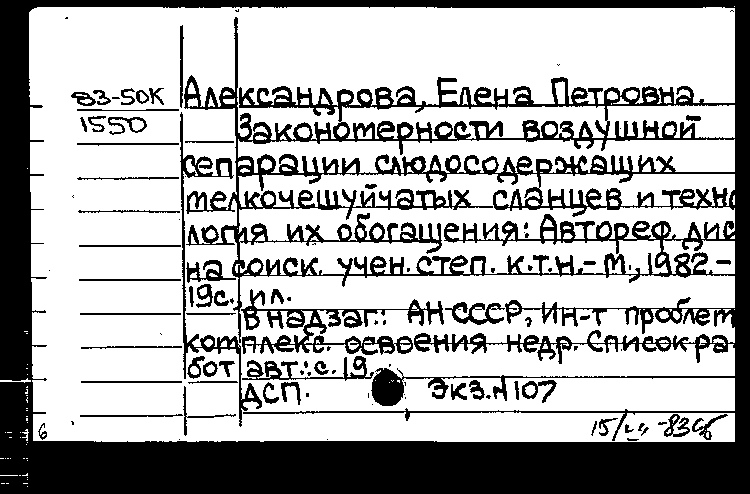 83-50К Александрова, Елена Петровна.
1550 Закономерности воздушной
сепарации слюдосодержащих
мелкочешуйчатых сланцев и техно
логия их обогащения: Автореф. дис
на соиск. учен. степ. к.т.н.-М., 1982.-
19с., ил.
В надзаг.: АН СССР, Ин-т проблем
комплекс. освоения недр. Список ра
бот авт.: с. 19.
ДСП. Экз.№107
6 15/ -83